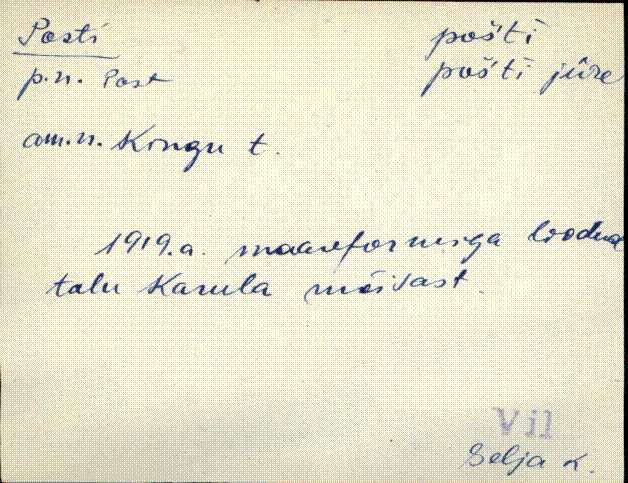 Posti
pošti
p.n. Post
pošti jüre
am.n. Kingu t.
1919.a. maareformiga loodud
talu Karula mõisast.
Vil
Selja k.